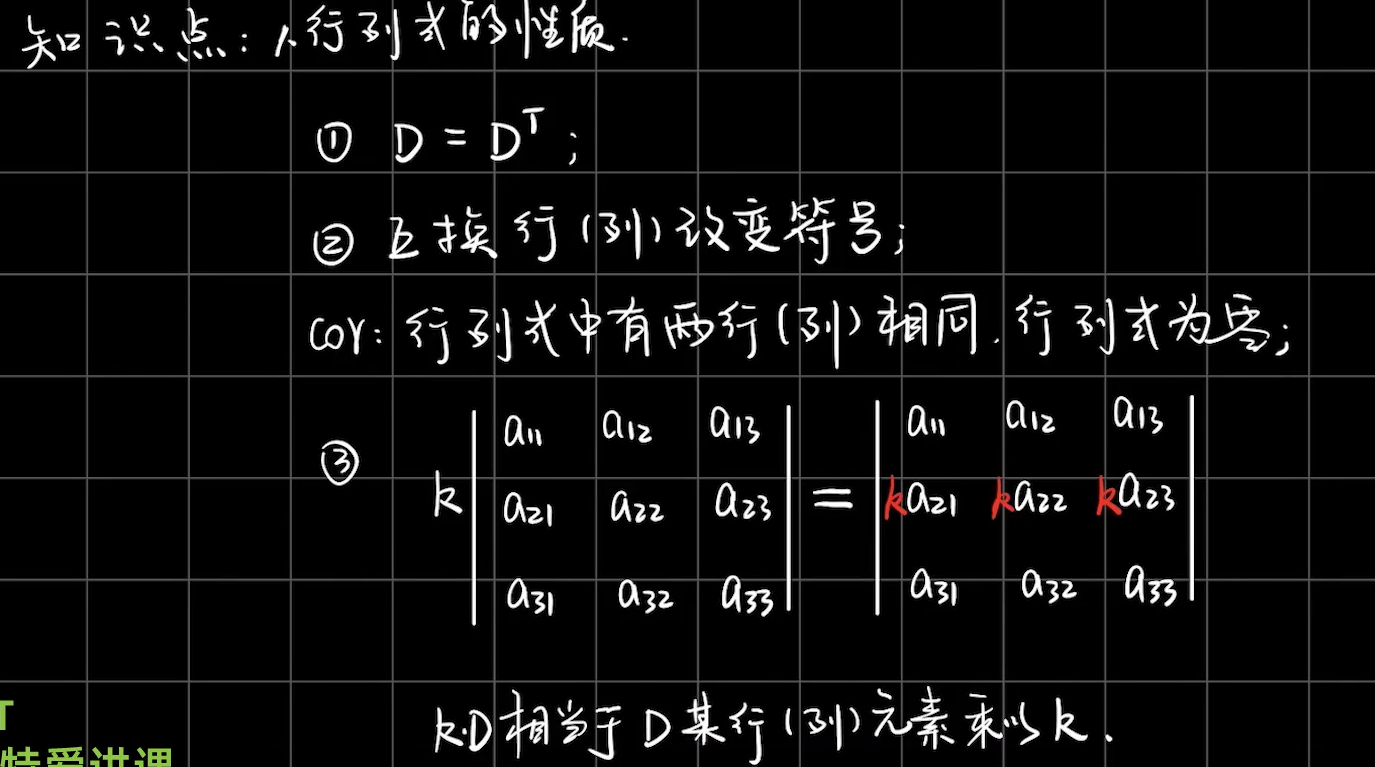 知识点：1.行列式的性质.
① D = Dᵀ；
② 互换行(列)改变符号；
cor：行列式中有两行(列)相同.行列式为零；
③
k | a₁₁ a₁₂ a₁₃ | = | a₁₁ a₁₂ a₁₃ |
| a₂₁ a₂₂ a₂₃ | | ka₂₁ ka₂₂ ka₂₃ |
| a₃₁ a₃₂ a₃₃ | | a₃₁ a₃₂ a₃₃ |
k·D相当于D某行(列)元素乘以k.
T
特爱讲课